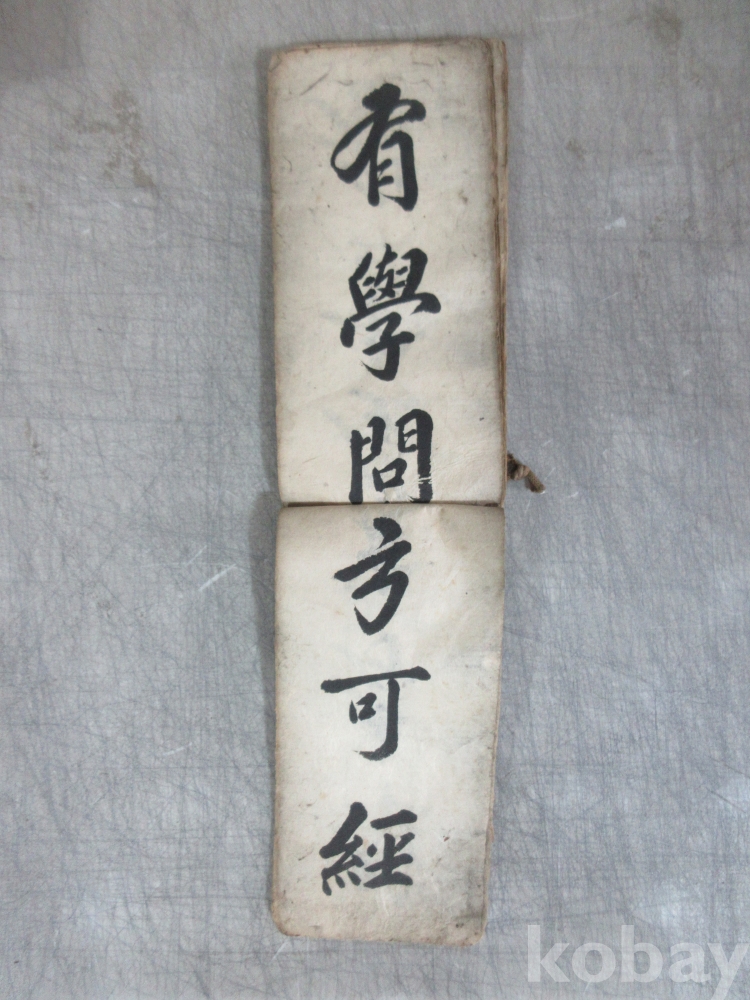 有學問方可經
kobay